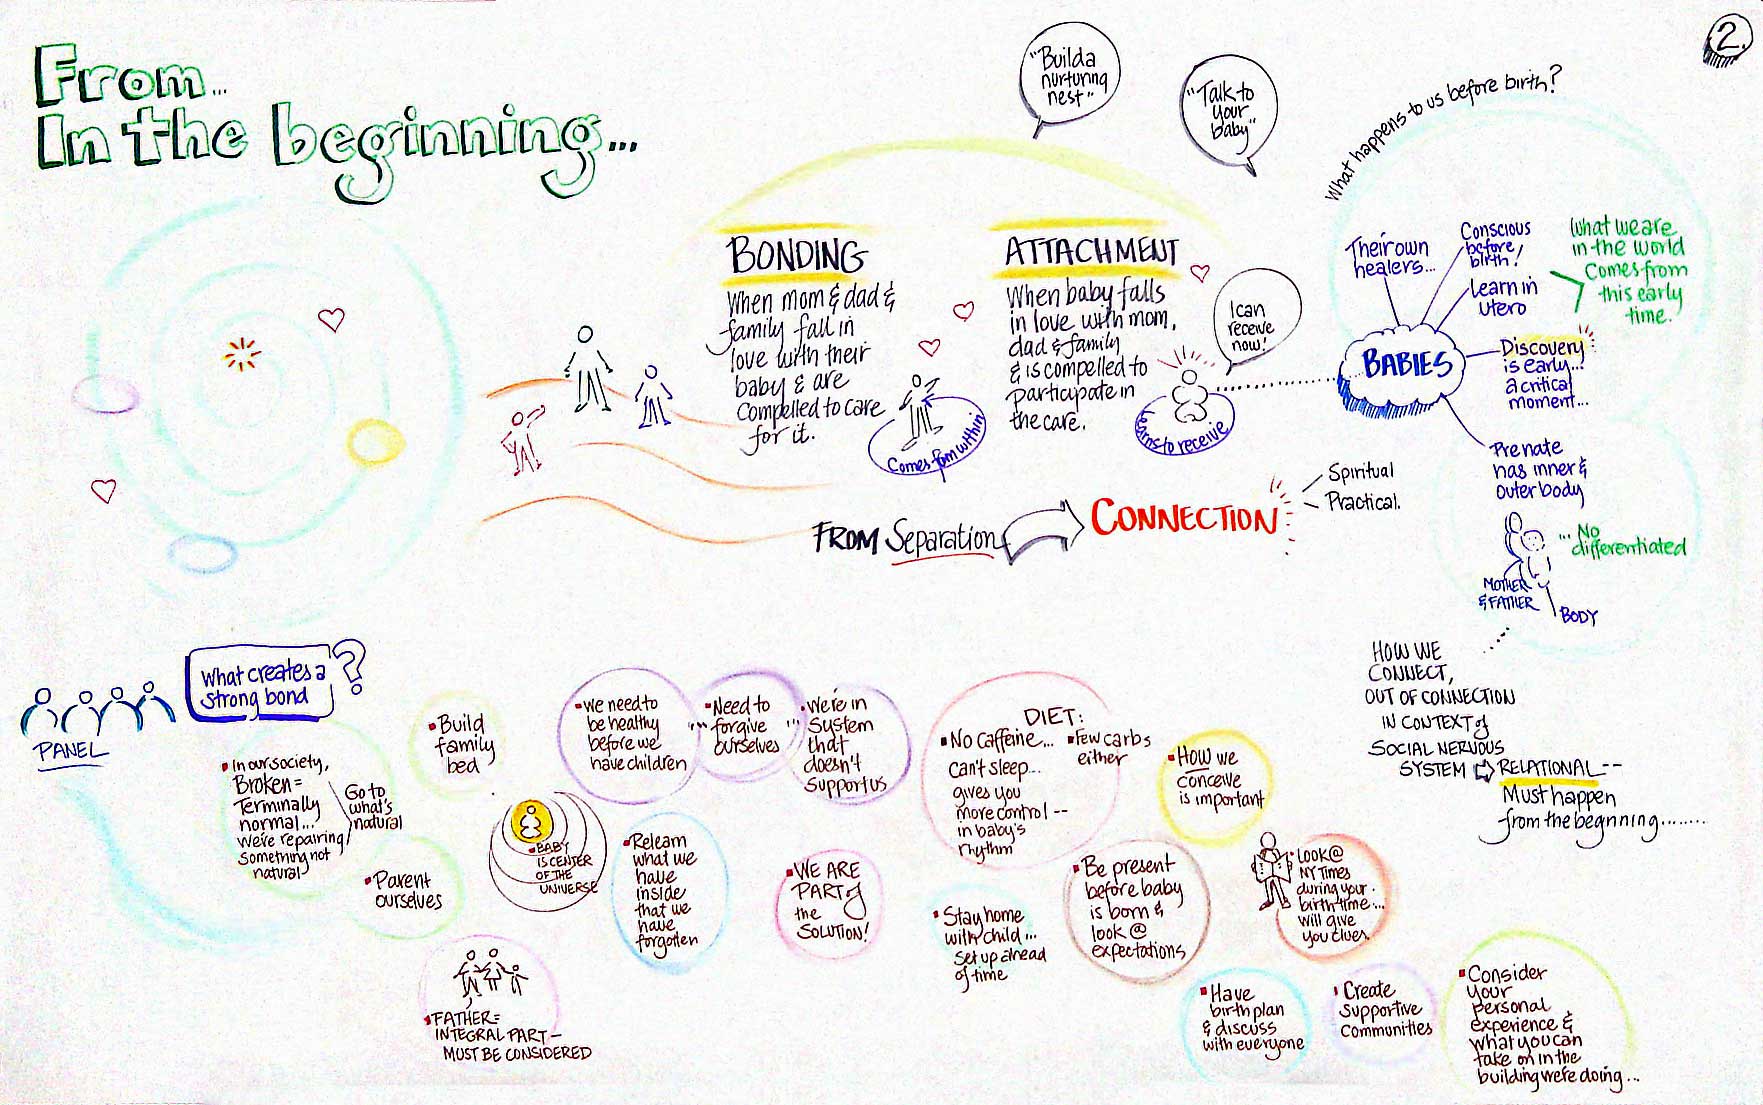 2.
From...
In the beginning...
"Build a
nurturing
nest"
"Talk to
your
baby"
What happens to us before birth?
BONDING
When mom & dad &
family fall in
love with their
baby & are
compelled to care
for it.
Comes from within
ATTACHMENT
When baby falls
in love with mom,
dad & family
& is compelled to
participate in
the care.
I can
receive
now!
Learns to receive
BABIES
Their own
healers...
Conscious
before
birth!
Learn in
utero
What we are
in the world
Comes from
this early
time.
Discovery
is early...
a critical
moment...
Prenate
has inner &
outer body
... No
differentiated
MOTHER
& FATHER
BODY
FROM Separation
CONNECTION
Spiritual
Practical.
HOW WE
CONNECT,
OUT OF CONNECTION
IN CONTEXT of
SOCIAL NERVOUS
SYSTEM ⇨ RELATIONAL --
Must happen
from the beginning........
PANEL
What creates a
strong bond
?
▪ In our society,
Broken =
Terminally
normal...
we're repairing
something not
natural
Go to
what's
natural
▪ Parent
ourselves
▪ Build
family
bed
▪ BABY
IS CENTER
OF THE
UNIVERSE
▪ FATHER =
INTEGRAL PART —
MUST BE CONSIDERED
▪ We need to
be healthy
before we
have children
▪ Need to
"" forgive ""
ourselves
▪ We're in
system
that
doesn't
support us
▪ Relearn
what we
have
inside
that we
have
forgotten
▪ WE ARE
PART of
the
SOLUTION!
DIET:
▪ No caffeine...
can't sleep...
gives you
more control --
in baby's
rhythm
▪ Few carbs
either
▪ HOW we
conceive
is important
▪ Stay home
with child...
set up ahead
of time
▪ Be present
before baby
is born &
look @
expectations
▪ Look @
NY Times
during your
birth time...
will give
you clues.
▪ Have
birth plan
& discuss
with everyone
▪ Create
supportive
communities
▪ Consider
your
personal
experience &
what you can
take on in the
building we're doing...